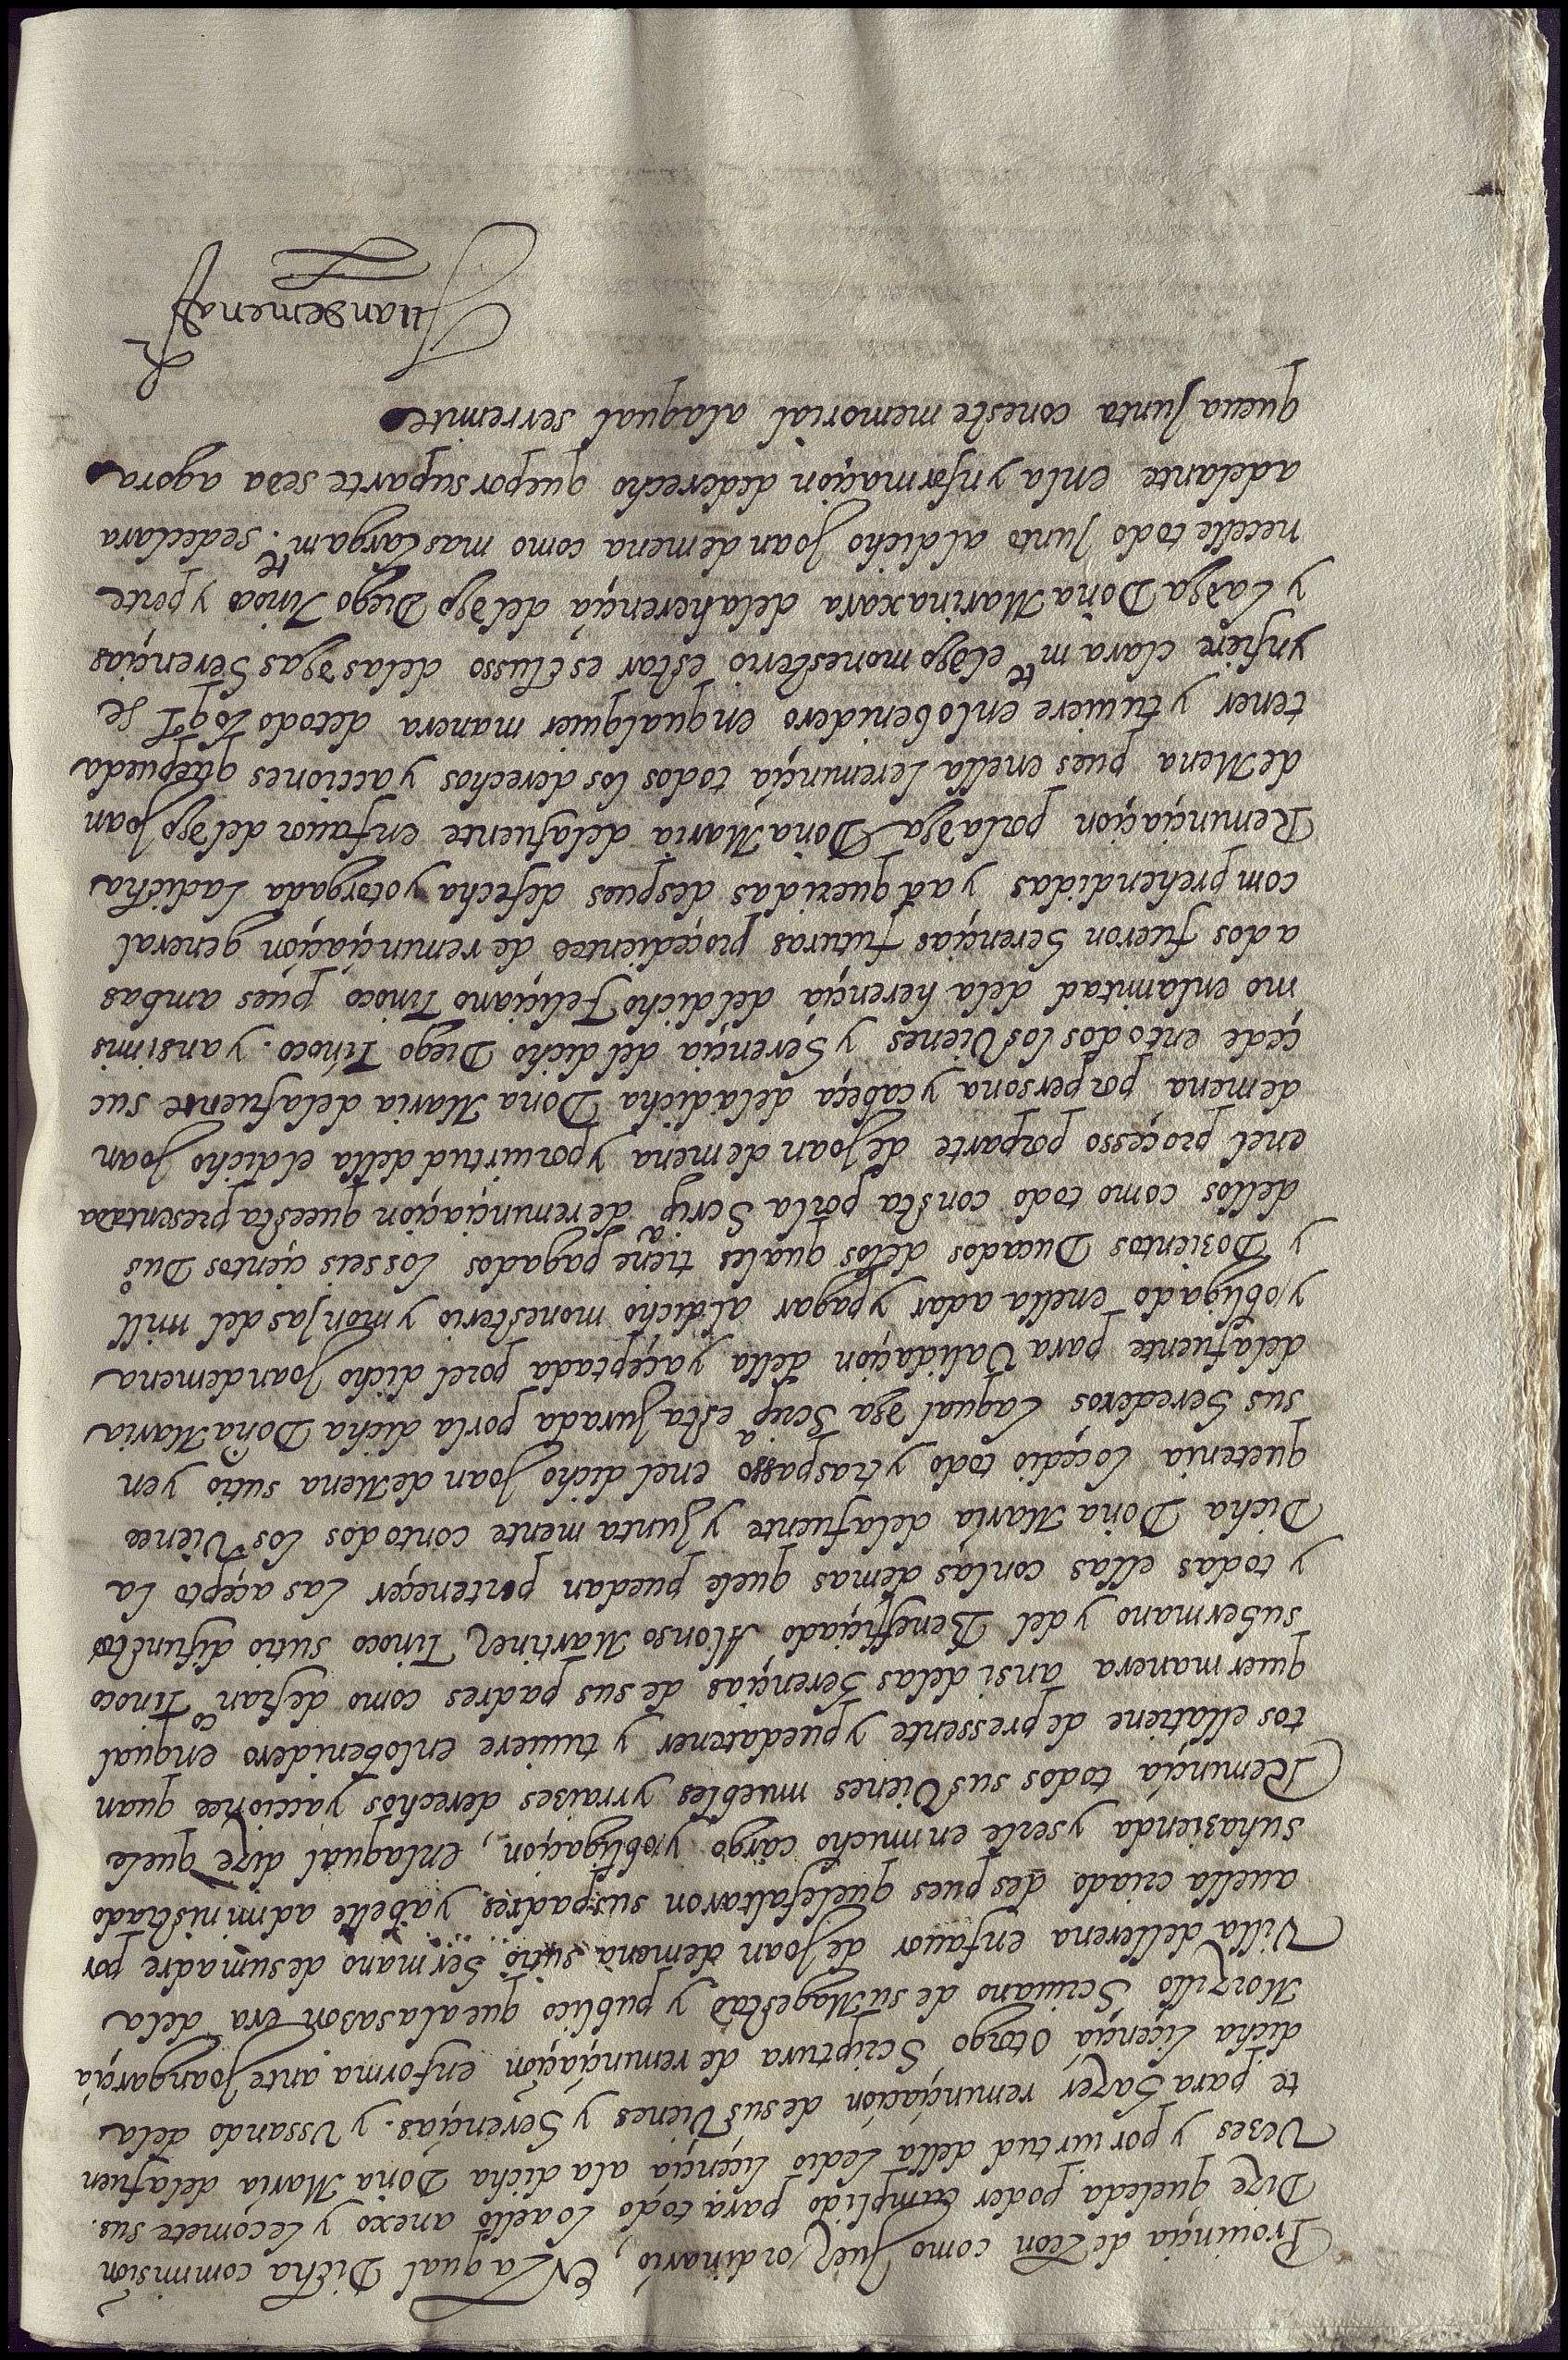 Prouinçia de Leon como Juez ordinario, En La qual Dicha commision
Dize queleda poder cumplido para todo Loaello anexo y Lecomete sus
Vezes y por uirtud della Ledio liçençia ala dicha Doña Maria delafuen
te para hazer renunçiaçion desus Vienes y herençias. y Vssando dela
dicha liçençia Otorgo Scriptura de renunçiaçion enforma ante Joangarçia
Morzillo Scriuano de su Magestad y publico que alasason era dela
Villa dellerena enfauor de Joan demena sutio hermano desumadre por
auella criado des pues quelefaltaron suspadres yabelle administrado
suhazienda yserle enmucho cargo yobligaçion, enlaqual dize quele
Renunçia todos sus Vienes muebles yrraises derechos yacciones quan
tos ellatiene depressente ypuedatener y tuuiere enlobenidero enqual
quier manera ansi delas herençias de sus padres como defran.co Tinoco
suhermano y del Benefiçiado Alonso Martinez Tinoco sutio difunctos
y todas ellas conlas demas quele puedan perteneçer Las açepto La
Dicha Doña Maria delafuente y Junta mente contodos los Vienes
quetenia Loçedio todo ytraspasso enel dicho Joan deMena sutio yen
sus herederos Laqual dha Scrip.a esta Jurada porla dicha Doña Maria
delafuente para Validaçion della yaçeptada porel dicho Joandemena
yobligado enella adar ypagar aldicho monesterio ymonJas del mill
y Dozientos Ducados delos quales tiene pagados losseis çientos Du.os
dellos como todo consta porla Scrip.a derenunçiaçion queesta presentada
enel proçesso porparte de Joan demena yporuirtud della eldicho Joan
demena por persona ycabeça deladicha Doña Maria delafuente suc
çede entodos los Vienes y herençia del dicho Diego Tinoco. yansimis
mo enlamitad dela herençia deldicho Feliçiano Tinoco pues ambas
ados fueron herençias futuras proçedientes de renunçiaçion general
comprehendidas yadqueridas despues defecha yotorgada Ladicha
Renunçiaçion porladha Doña Maria delafuente enfauor deldho Joan
deMena pues enella Lerenunçia todos los derechos yacciones quepueda
tener ytuuiere enlobenidero enqualquier manera detodo Loql se
ynfiere claram.te eldho monesterio estar esclusso delas dhas herençias
y Ladha Doña Marinaxara delaherençia deldho Diego Tinoco yperte
necelle todo Junto aldicho Joan demena como maslargam.te sedeclara
adelante enla ynformaçion dederecho quepor suparte seda agora
queua Junta coneste memorial alaqual serremite
Juan de mena